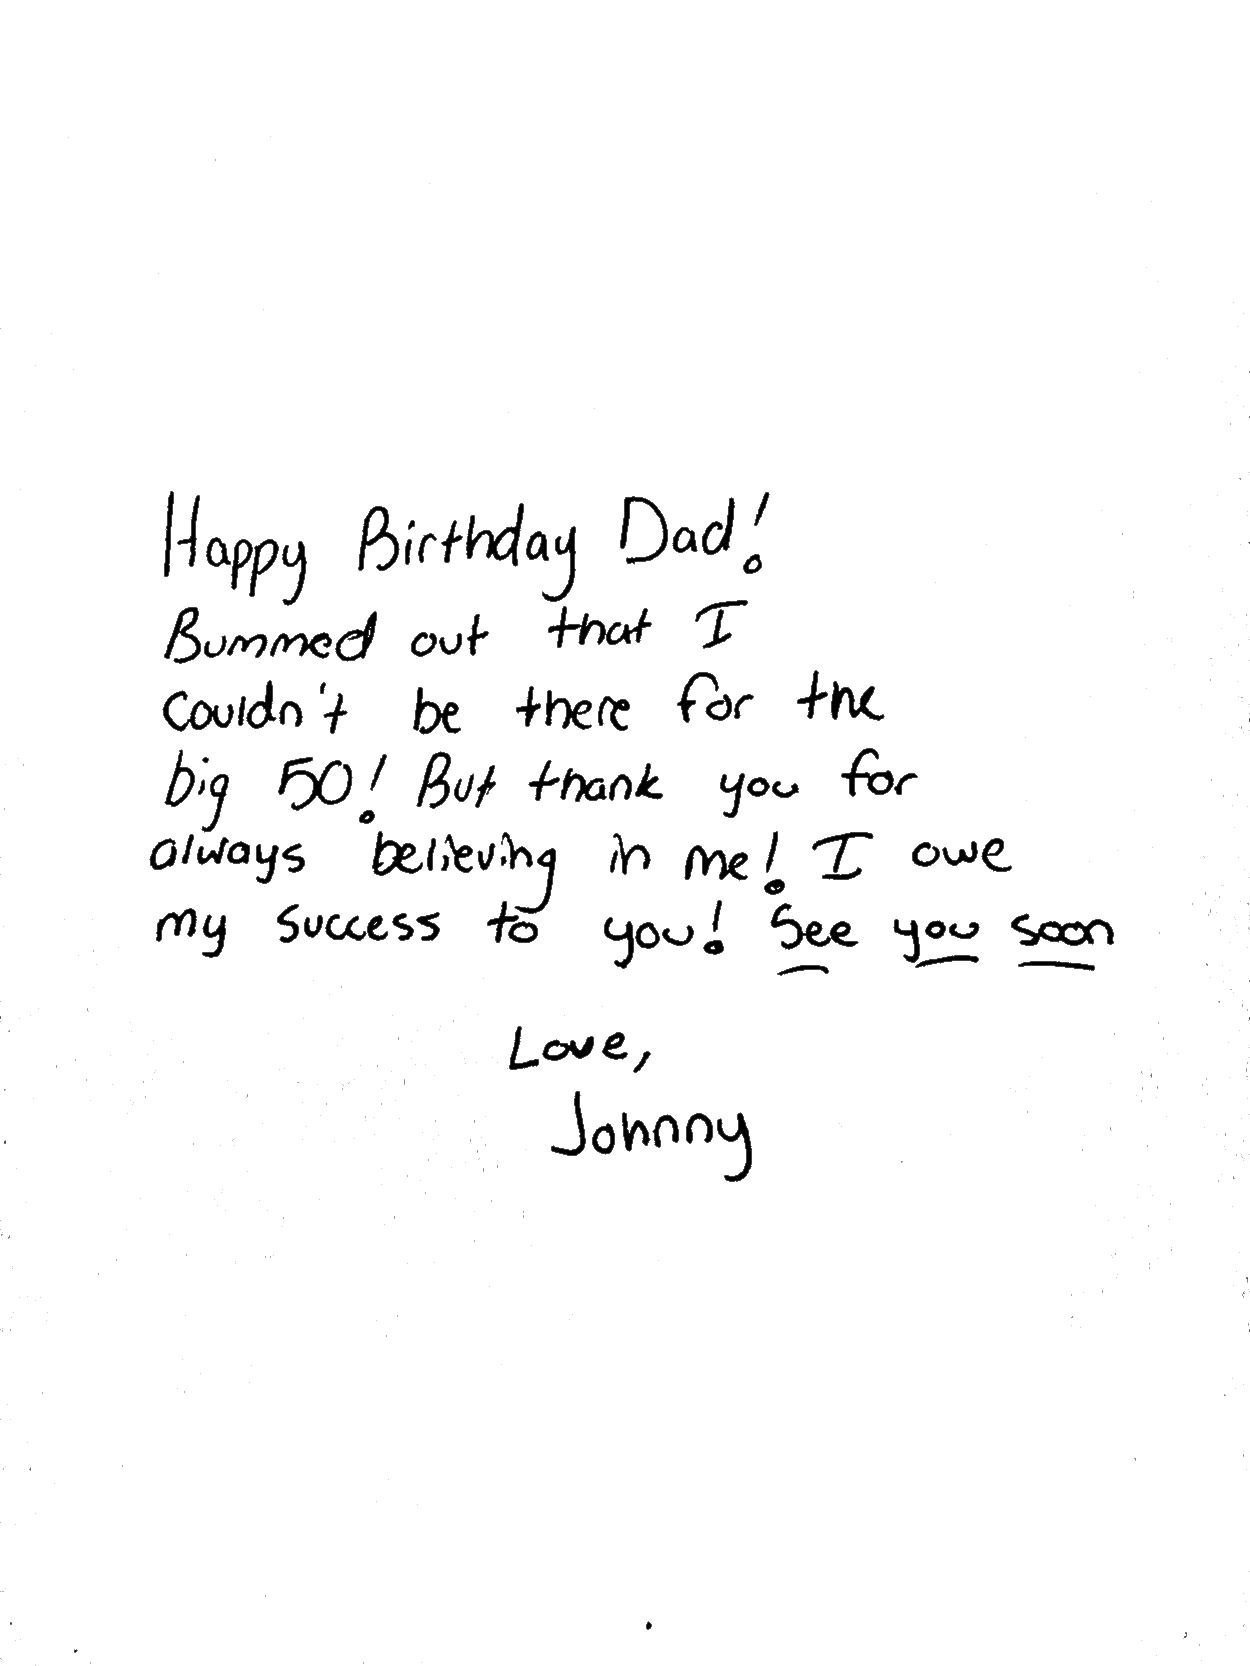 Happy Birthday Dad!
Bummed out that I
couldn't be there for the
big 50! But thank you for
always believing in me! I owe
my success to you! See you soon
Love,
Johnny